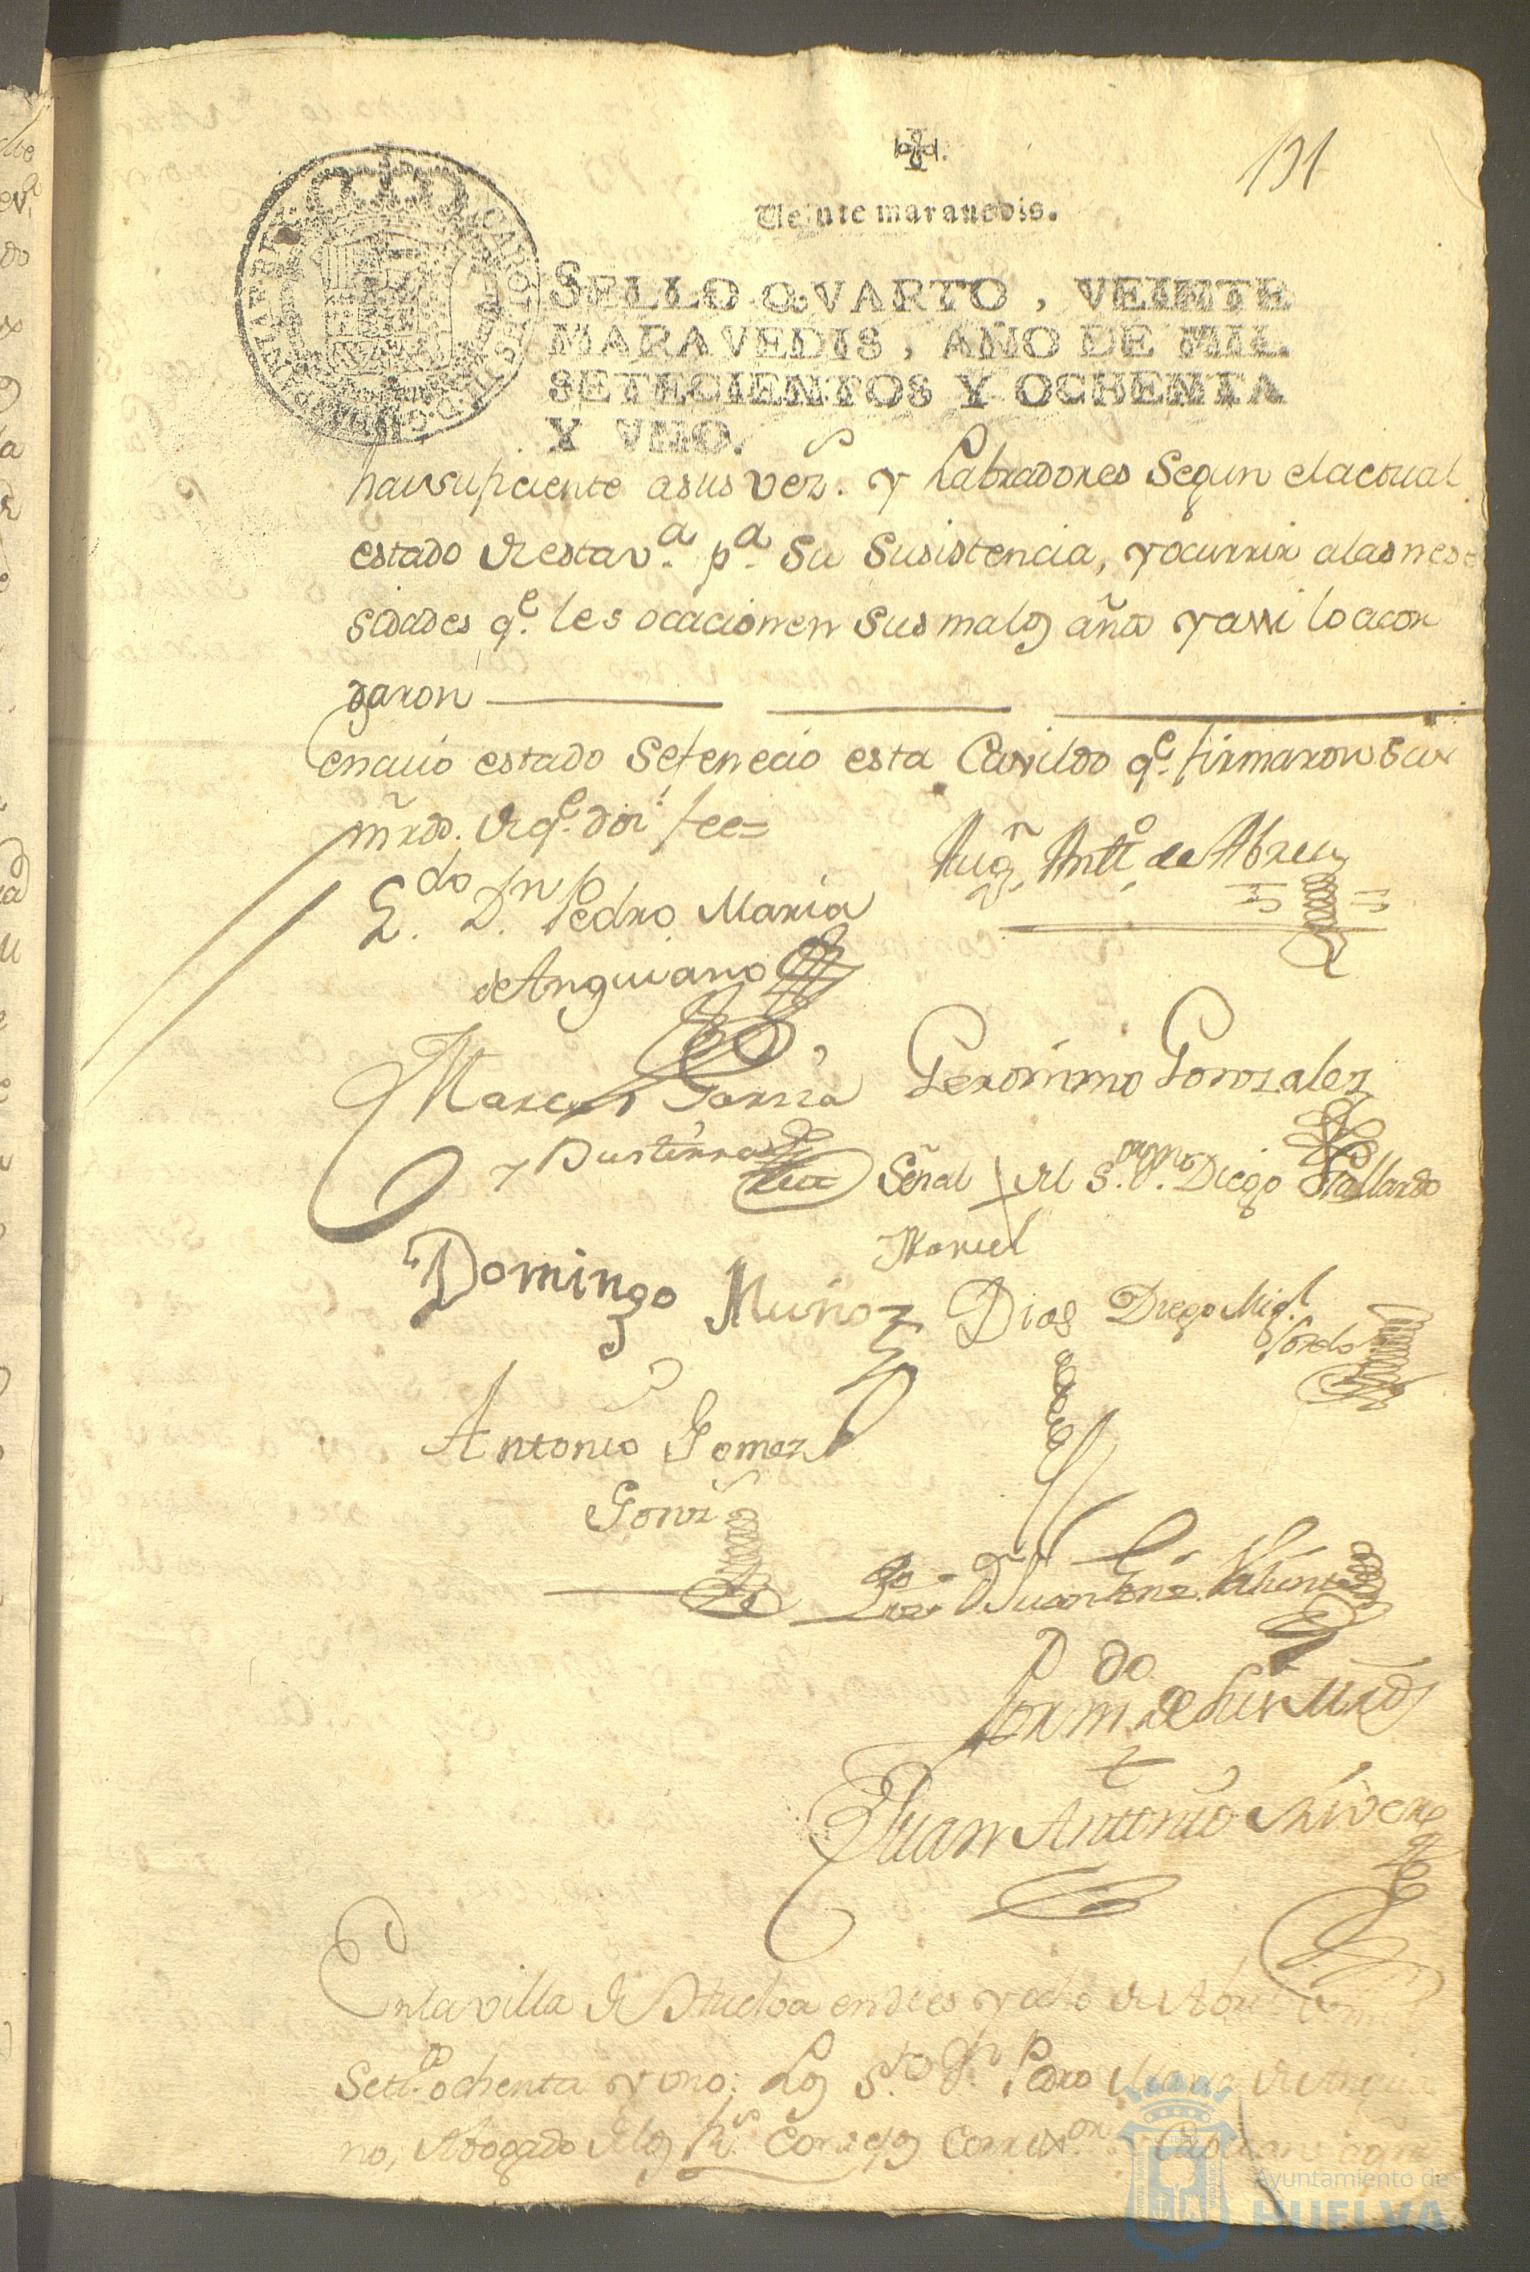 191
Veinte maravedis.
SELLO QVARTO, VEINTE
MARAVEDIS, AÑO DE MIL
SETECIENTOS Y OCHENTA
Y VNO.
asus vez.s y Labradores Segun elactual
estado de esta v.a p.a Su Susistencia, y ocurrir alas nese
sidades q.e les ocacionen Sus malos años y assi lo acor
daron
en cuio estado Se fenecio esta Cavildo q.e firmaron Sus
mrds. de q.e doi fee=
L.do D.n Pedro Maria
de Anguiano
Aug.n Antt.o de Abreu
Marcos Garcia
y Bustierra
Geronimo Gonzalez
Señal del S.or Diego Gallardo
Manuel
Domingo Muñoz
Dias
Diego Mig.l
Antonio Gomez
Gonz
For m.do de Sus Mrds
Juan Antonio Rivera
En la villa de Huelva en dies y ocho de Abril
Sett.os ochenta y uno; Los S.res D.n Pedro Maria de Angui
no, Abogado de los R.s Consejos Correx.or
Ayuntamiento de
HUELVA